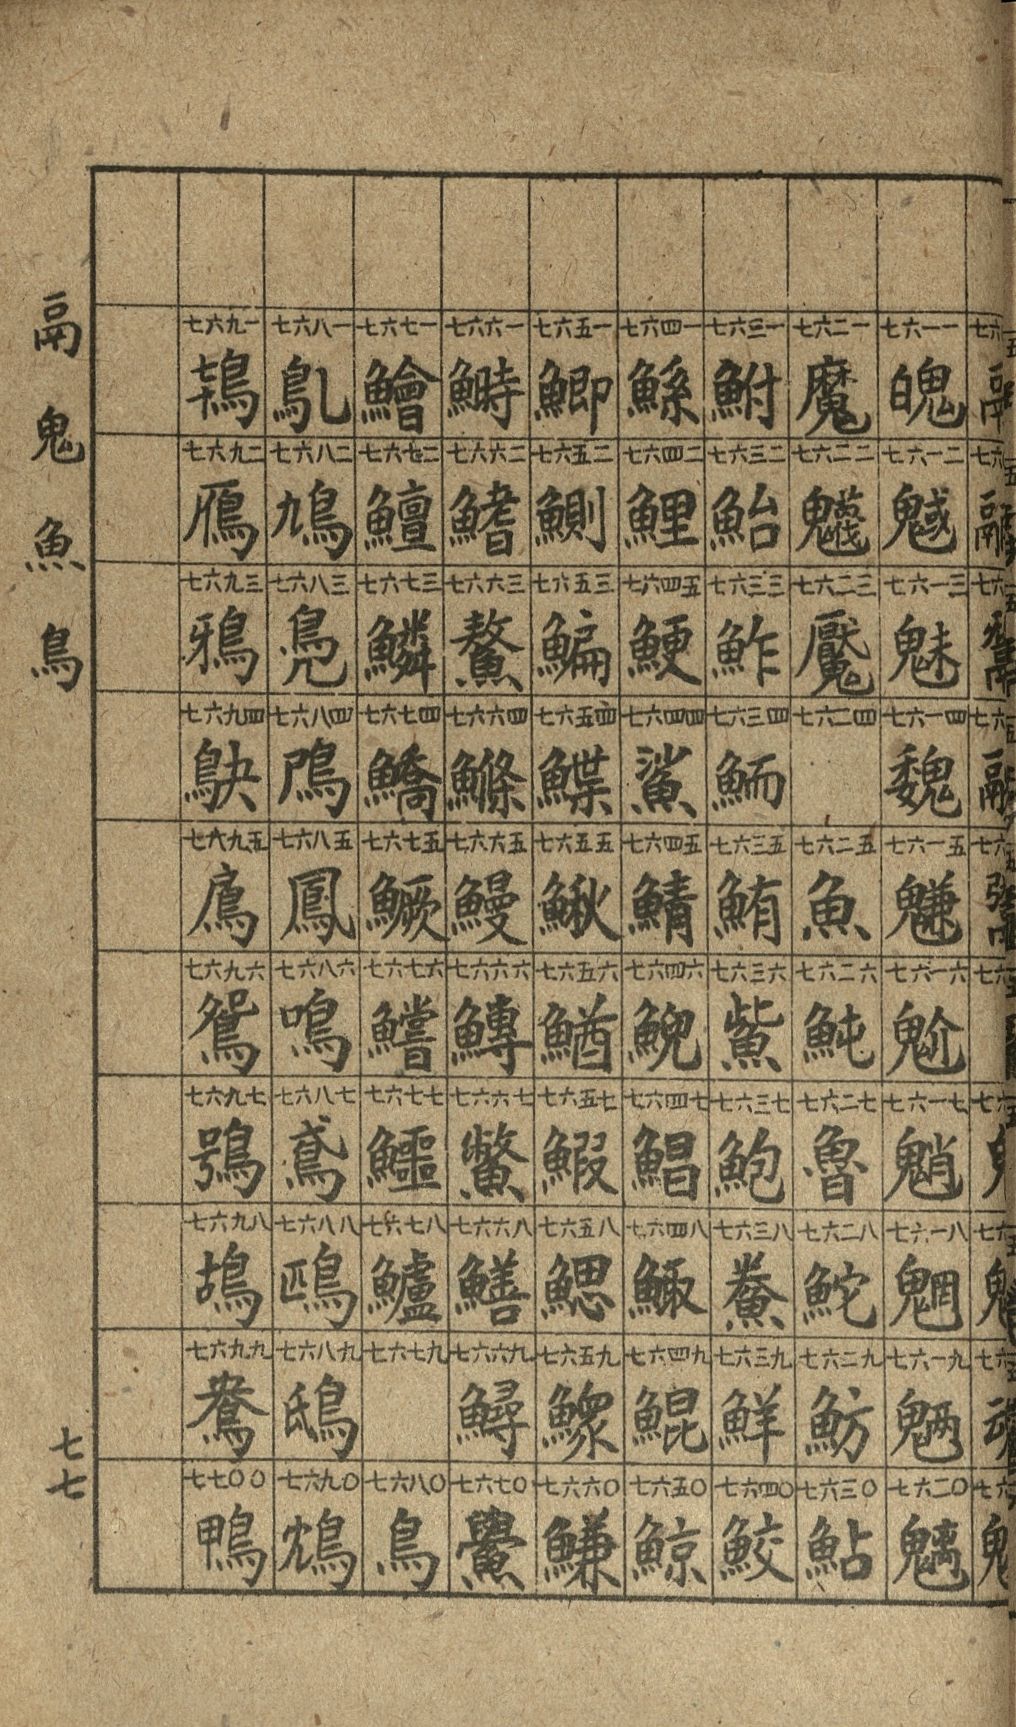 鬲
鬼
魚
鳥
七七
七六一一 魄
七六一二 魊
七六一三 魅
七六一四 魏
七六一五
七六一六 魀
七六一七 魈
七六一八 魍
七六一九 魎
七六二〇 魑
七六二一 魔
七六二二 魕
七六二三 魘
七六二四
七六二五 魚
七六二六 魨
七六二七 魯
七六二八 鮀
七六二九 魴
七六三〇 鮎
七六三一 鮒
七六三二 鮐
七六三三 鮓
七六三四 鮞
七六三五 鮪
七六三六 鮆
七六三七 鮑
七六三八 鮝
七六三九 鮮
七六四〇 鮫
七六四一 鯀
七六四二 鯉
七六四五 鯁
七六四四 鯊
七六四五 鯖
七六四六 鯢
七六四七 鯧
七六四八 鯫
七六四九 鯤
七六五〇 鯨
七六五一 鯽
七六五二 鰂
七六五三 鯿
七六五四 鰈
七六五五 鰍
七六五六 鰌
七六五七 鰕
七六五八 鰓
七六五九 鰥
七六六〇 鰜
七六六一 鰣
七六六二 鰭
七六六三 鰲
七六六四 鰷
七六六五 鰻
七六六六 鱄
七六六七 鱉
七六六八 鱔
七六六九 鱘
七六七〇 鱟
七六七一 鱠
七六七二 鱣
七六七三 鱗
七六七四 鱎
七六七五 鱖
七六七六 鱨
七六七七 鱷
七六七八 鱸
七六七九
七六八〇 鳥
七六八一 鳦
七六八二 鳩
七六八三 鳧
七六八四 鳲
七六八五 鳳
七六八六 鳴
七六八七 鳶
七六八八
七六八九 鴟
七六九〇 鴆
七六九一 鴇
七六九二 鴈
七六九三 鴉
七六九四 鴃
七六九五
七六九六 鴛
七六九七 鴞
七六九八 鴣
七六九九 鴦
七七〇〇 鴨